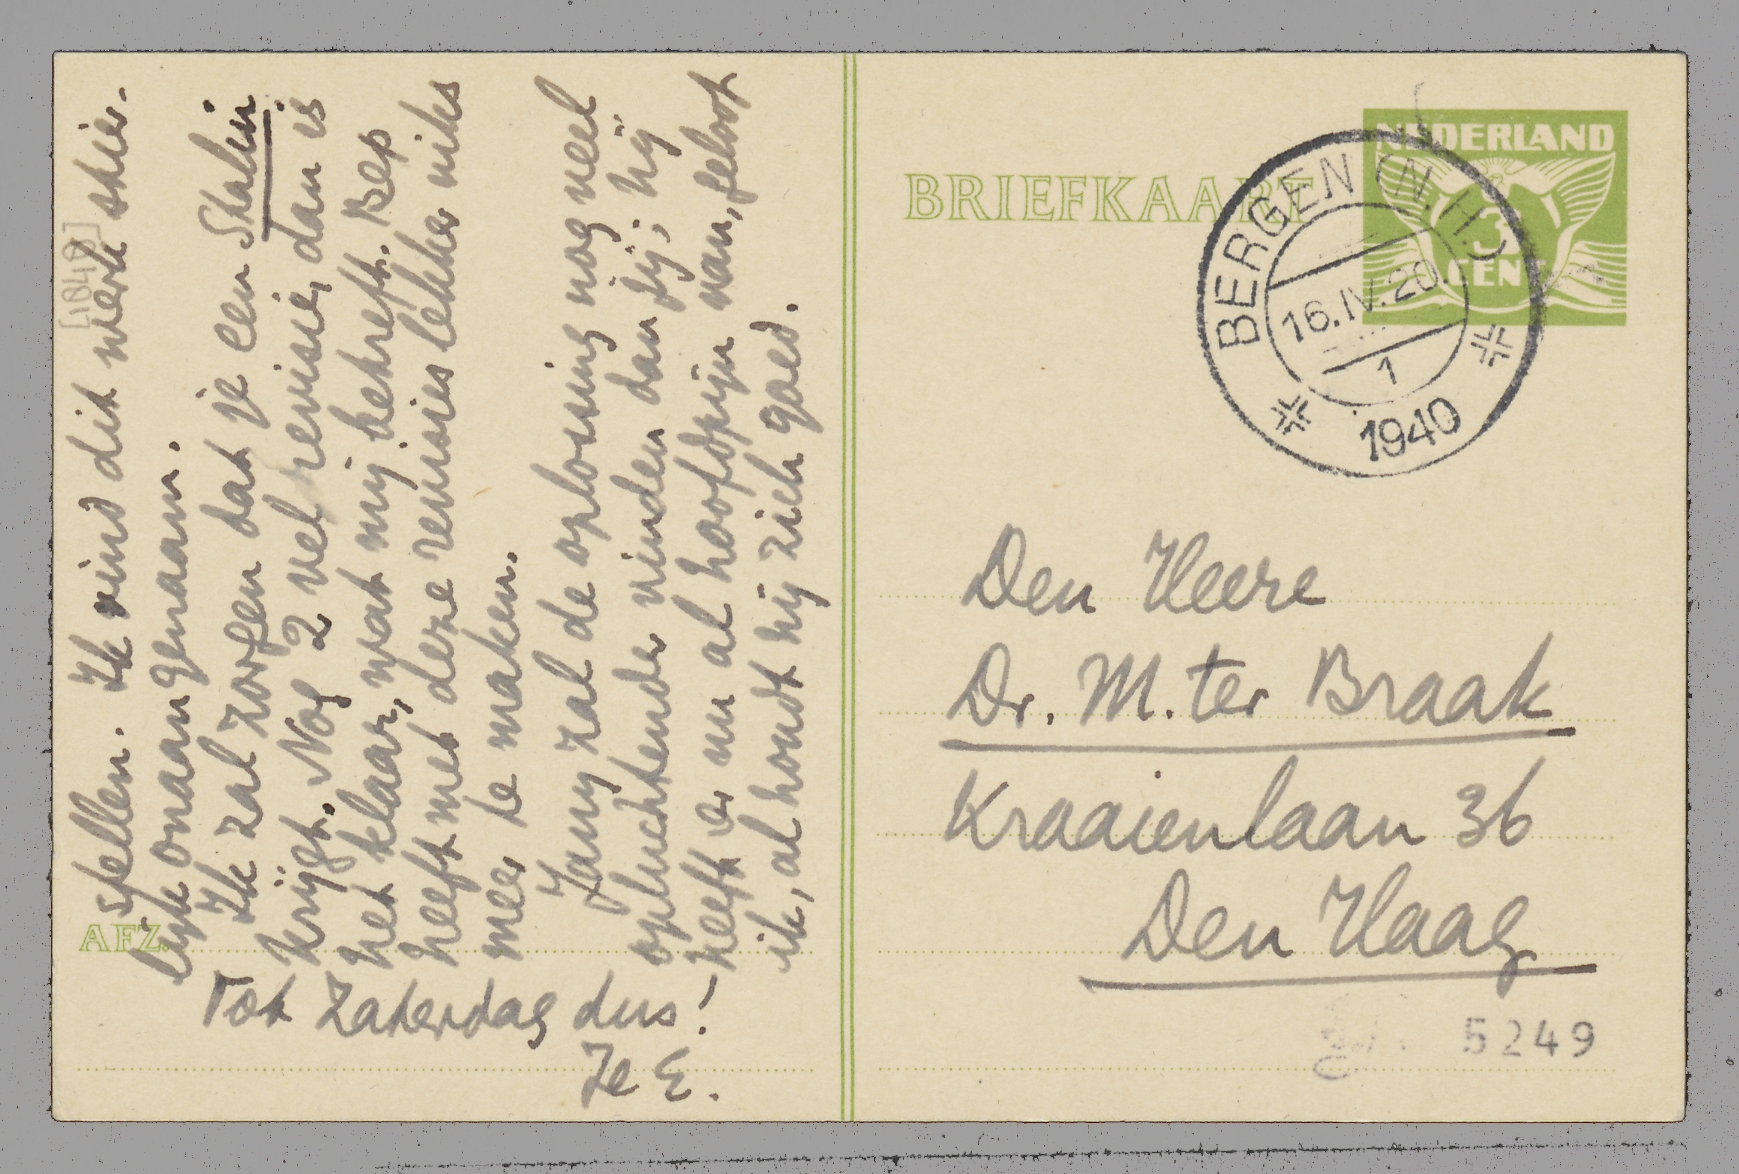 [1048]
spellen. Ik vind dit werk shier-
lijk onaangenaam.
Ik zal zorgen dat je een Stalin
krijgt. Nog 2 vel revisie, dan is
het klaar, wat mij betreft. Bep
heeft met deze revisies lekker niks
meer te maken.
Jany zal de oplossing nog veel
opluchtender vinden dan jij; hij
heeft er nu al hoofdpijn van, geloof
ik, al houdt hij zich goed.
Tot Zaterdag dus!
Je E.
AFZ.
BRIEFKAART
NEDERLAND
3
CENT
BERGEN (N.H.)
16.IV.20
1
1940
Den Heere
Dr. M. ter Braak
Kraaienlaan 36
Den Haag
5249